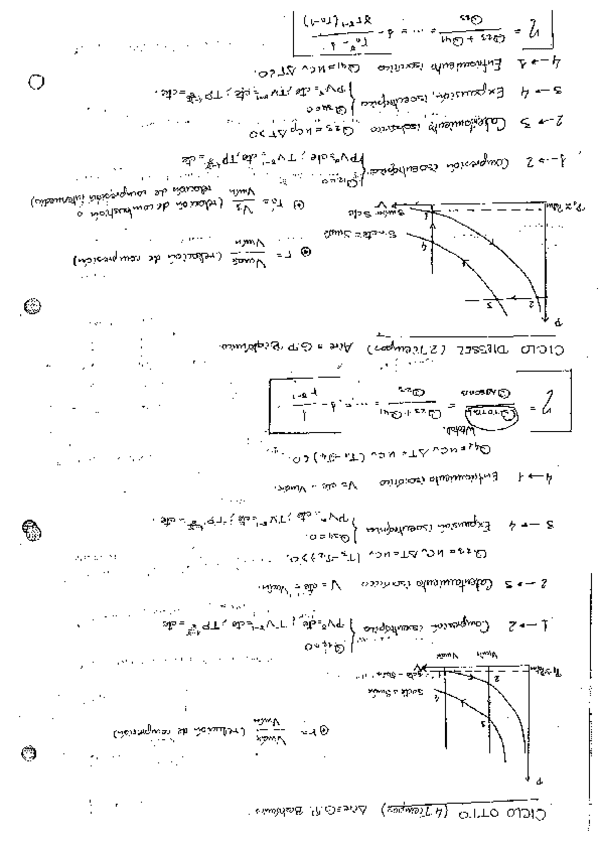 CICLO OTTO (4 Tiempos) Aire = G.P. Biatómico.
P
r = Vmáx / Vmín (relación de compresión)
3
2
4
1
S cte = Smáx
S cte = Smín
Vmín Vmáx
V
1 → 2 Compresión isoentrópica { Q12 = 0
PV^γ = cte ; TV^γ-1 = cte ; TP^1-γ/γ = cte
2 → 3 Calentamiento isocórico V = cte = Vmín.
Q23 = nCv ΔT = nCv (T3 - T2) > 0.
3 → 4 Expansión isoentrópica { Q34 = 0.
PV^γ = cte ; TV^γ-1 = cte ; TP^1-γ/γ = cte.
4 → 1 Enfriamiento isocórico V = cte = Vmáx.
Q41 = nCv ΔT = nCv (T1 - T4) < 0.
Wtotal.
η = QTOTAL / QABSORB = Q23 + Q41 / Q23 = ... = 1 - 1 / r^γ-1
CICLO DIESSEL (2 Tiempos) Aire = G.P. Biatómico.
P
2
3
4
1
S cte = Smáx
S mín = S cte
V
r = Vmáx / Vmín (relación de compresión)
r0 = V3 / Vmín (relación de combustión o
relación de compresión intermedia)
1 → 2 Compresión isoentrópica { Q12 = 0
PV^γ = cte ; TV^γ-1 = cte ; TP^1-γ/γ = cte
2 → 3 Calentamiento isobárico Q23 = nCp ΔT > 0
3 → 4 Expansión isoentrópica { Q34 = 0
PV^γ = cte ; TV^γ-1 = cte ; TP^1-γ/γ = cte.
4 → 1 Enfriamiento isocórico Q41 = nCv ΔT < 0.
η = Q23 + Q41 / Q23 = ... = 1 - r0^γ - 1 / γ r^γ-1 (r0 - 1)